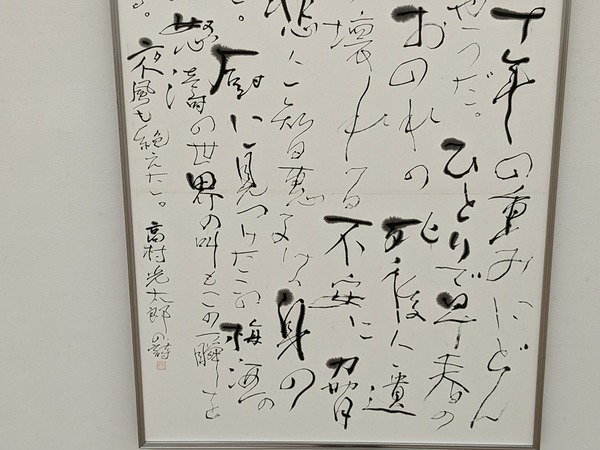 十年の重みにどん
やうだ。ひとりで早春の
おのれの死後に遺
壊れる不安に脅
悲に智恵子は身の
。厨に見つけたこの梅酒の
怒濤の世界の叫もこの一瞬を
る。夜風も絶えた。高村光太郎の詩